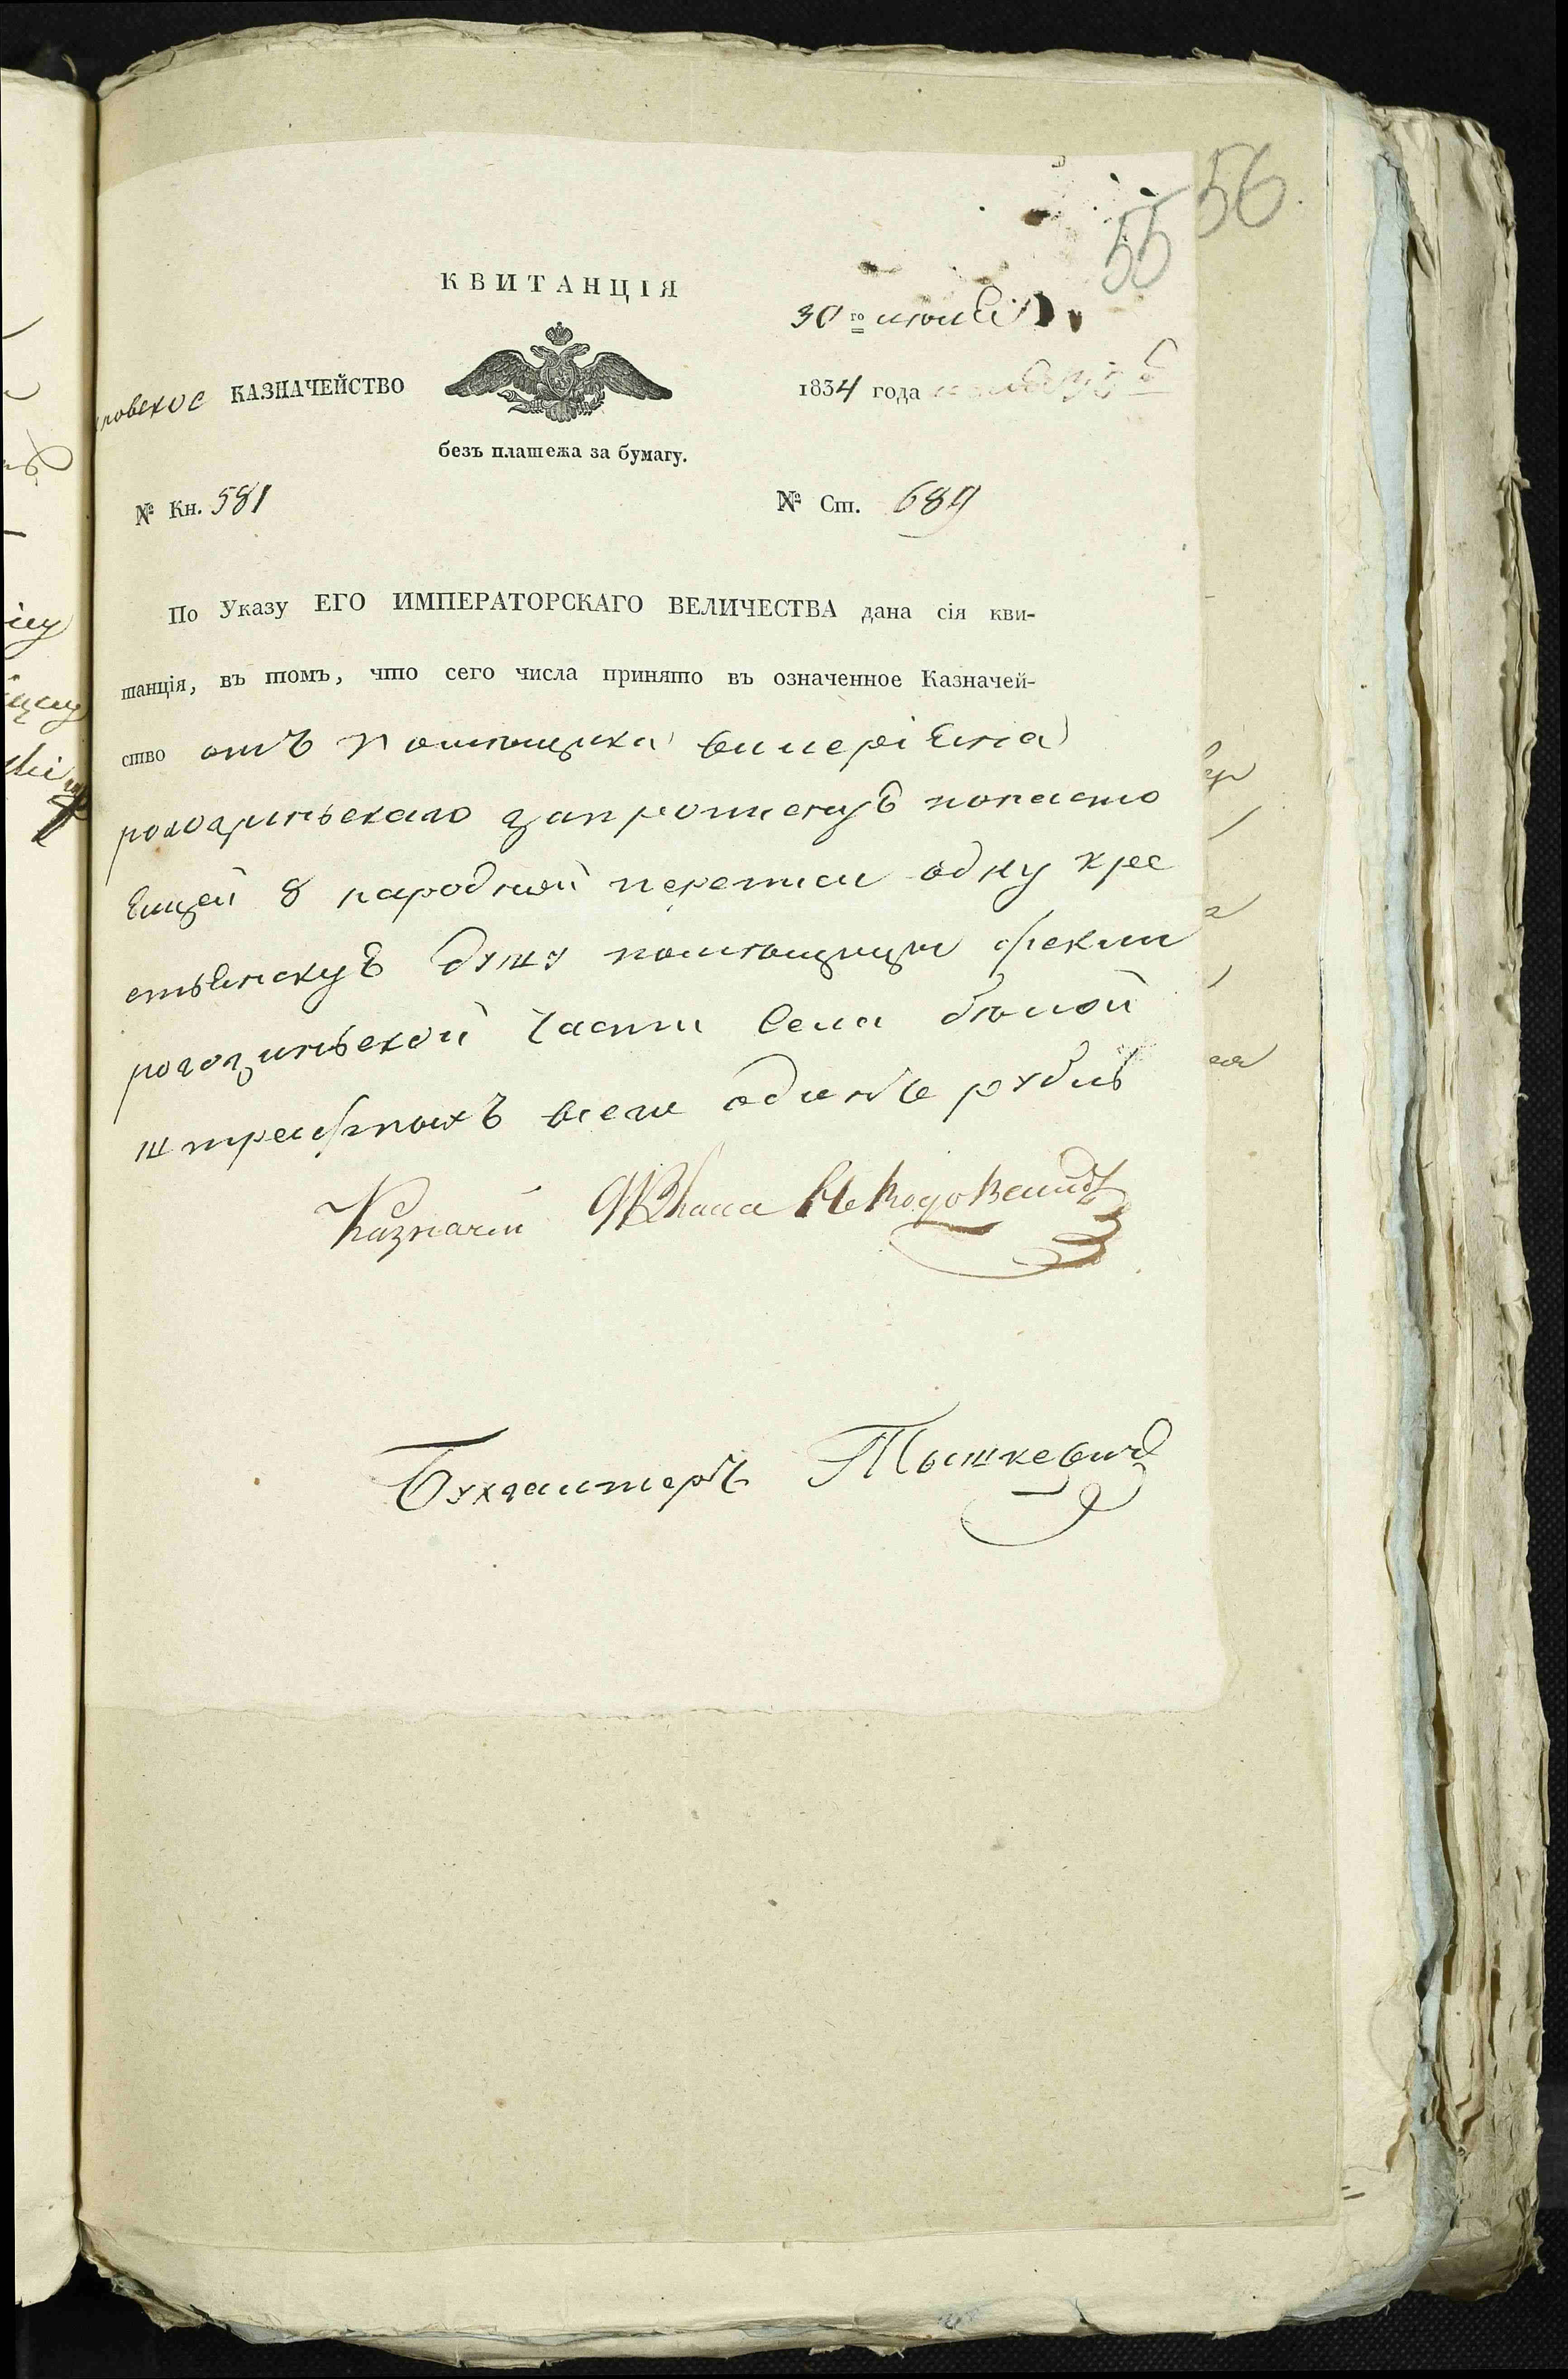 56
55
КВИТАНЦІЯ
30 го июня
ловское КАЗНАЧЕЙСТВО
1834 года
безъ платежа за бумагу.
№ Кн. 581
№ Ст. 689
По Указу ЕГО ИМПЕРАТОРСКАГО ВЕЛИЧЕСТВА дана сія кви-
танція, въ томъ, что сего числа принято въ означенное Казначей-
ство отъ помѣщика валеріяна
рогозиньскаго за прописную по насто
ящей 8 народной переписи одну кре
стьянскую душу помѣщицы феклы
рогозиньской части села бѣлой
штрафныхъ всего одинъ рубль
Казначей
Бухгалтеръ Тышкевичъ